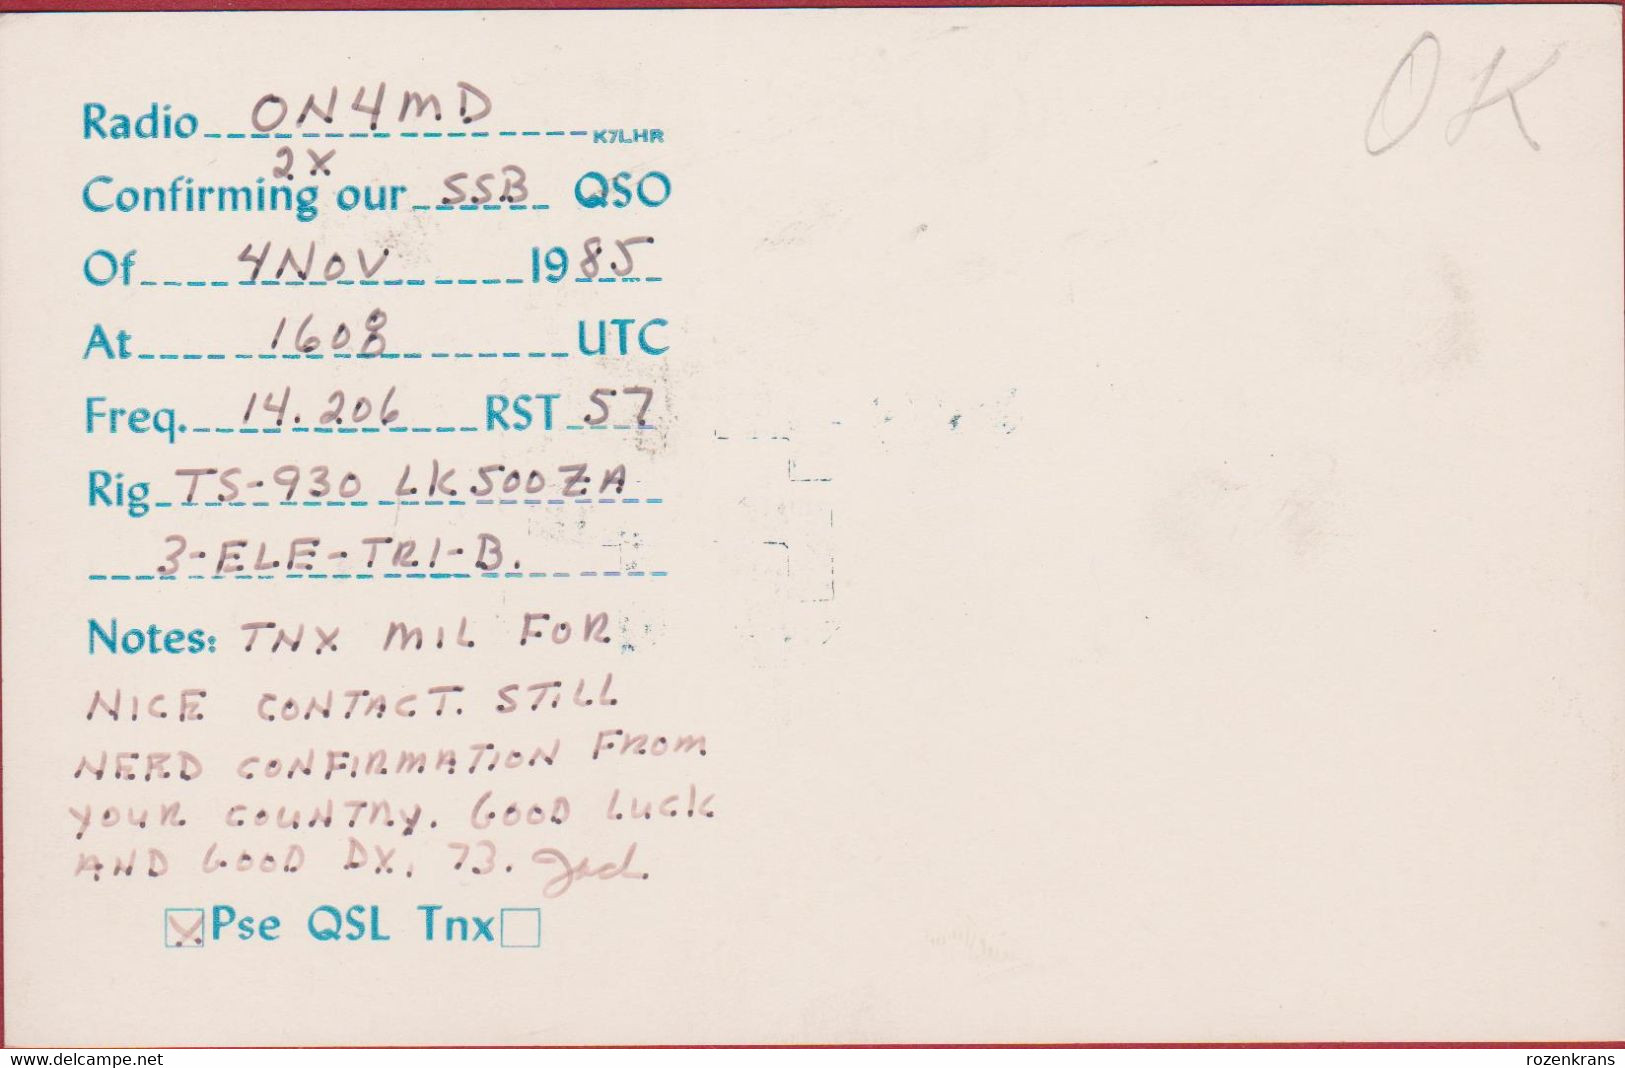 OK
Radio ON4MD K7LHR
2X
Confirming our SSB QSO
Of 4 NOV 1985
At 1608 UTC
Freq. 14.206 RST 57
Rig TS-930 LK500ZA
3-ELE-TRI-B.
Notes: TNX MIL FOR
NICE CONTACT. STILL
NEED CONFIRMATION FROM
YOUR COUNTRY. GOOD LUCK
AND GOOD DX. 73. Jack
X Pse QSL Tnx
www.delcampe.net
rozenkrans